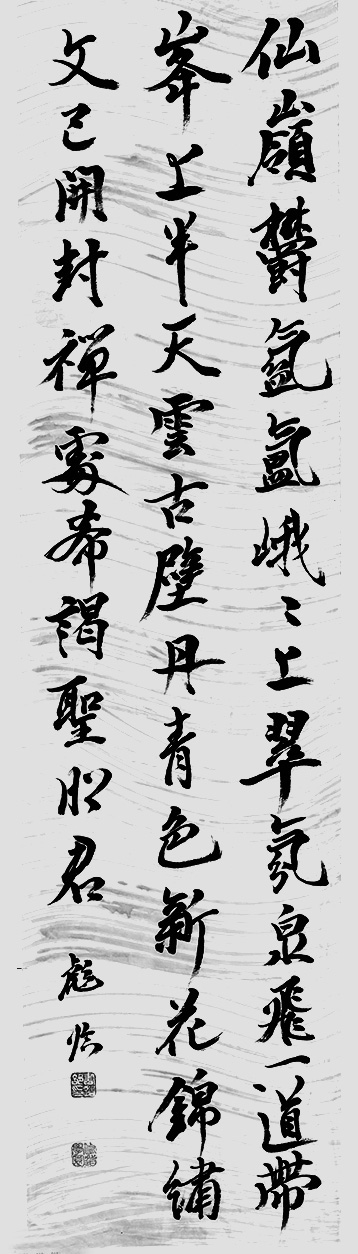 仙嶺鬱氤氳峨〻上翠氛泉飛一道帶
峯上半天雲古壁丹青色新花錦繡
文已開封禪處希謁聖明君
彪臨